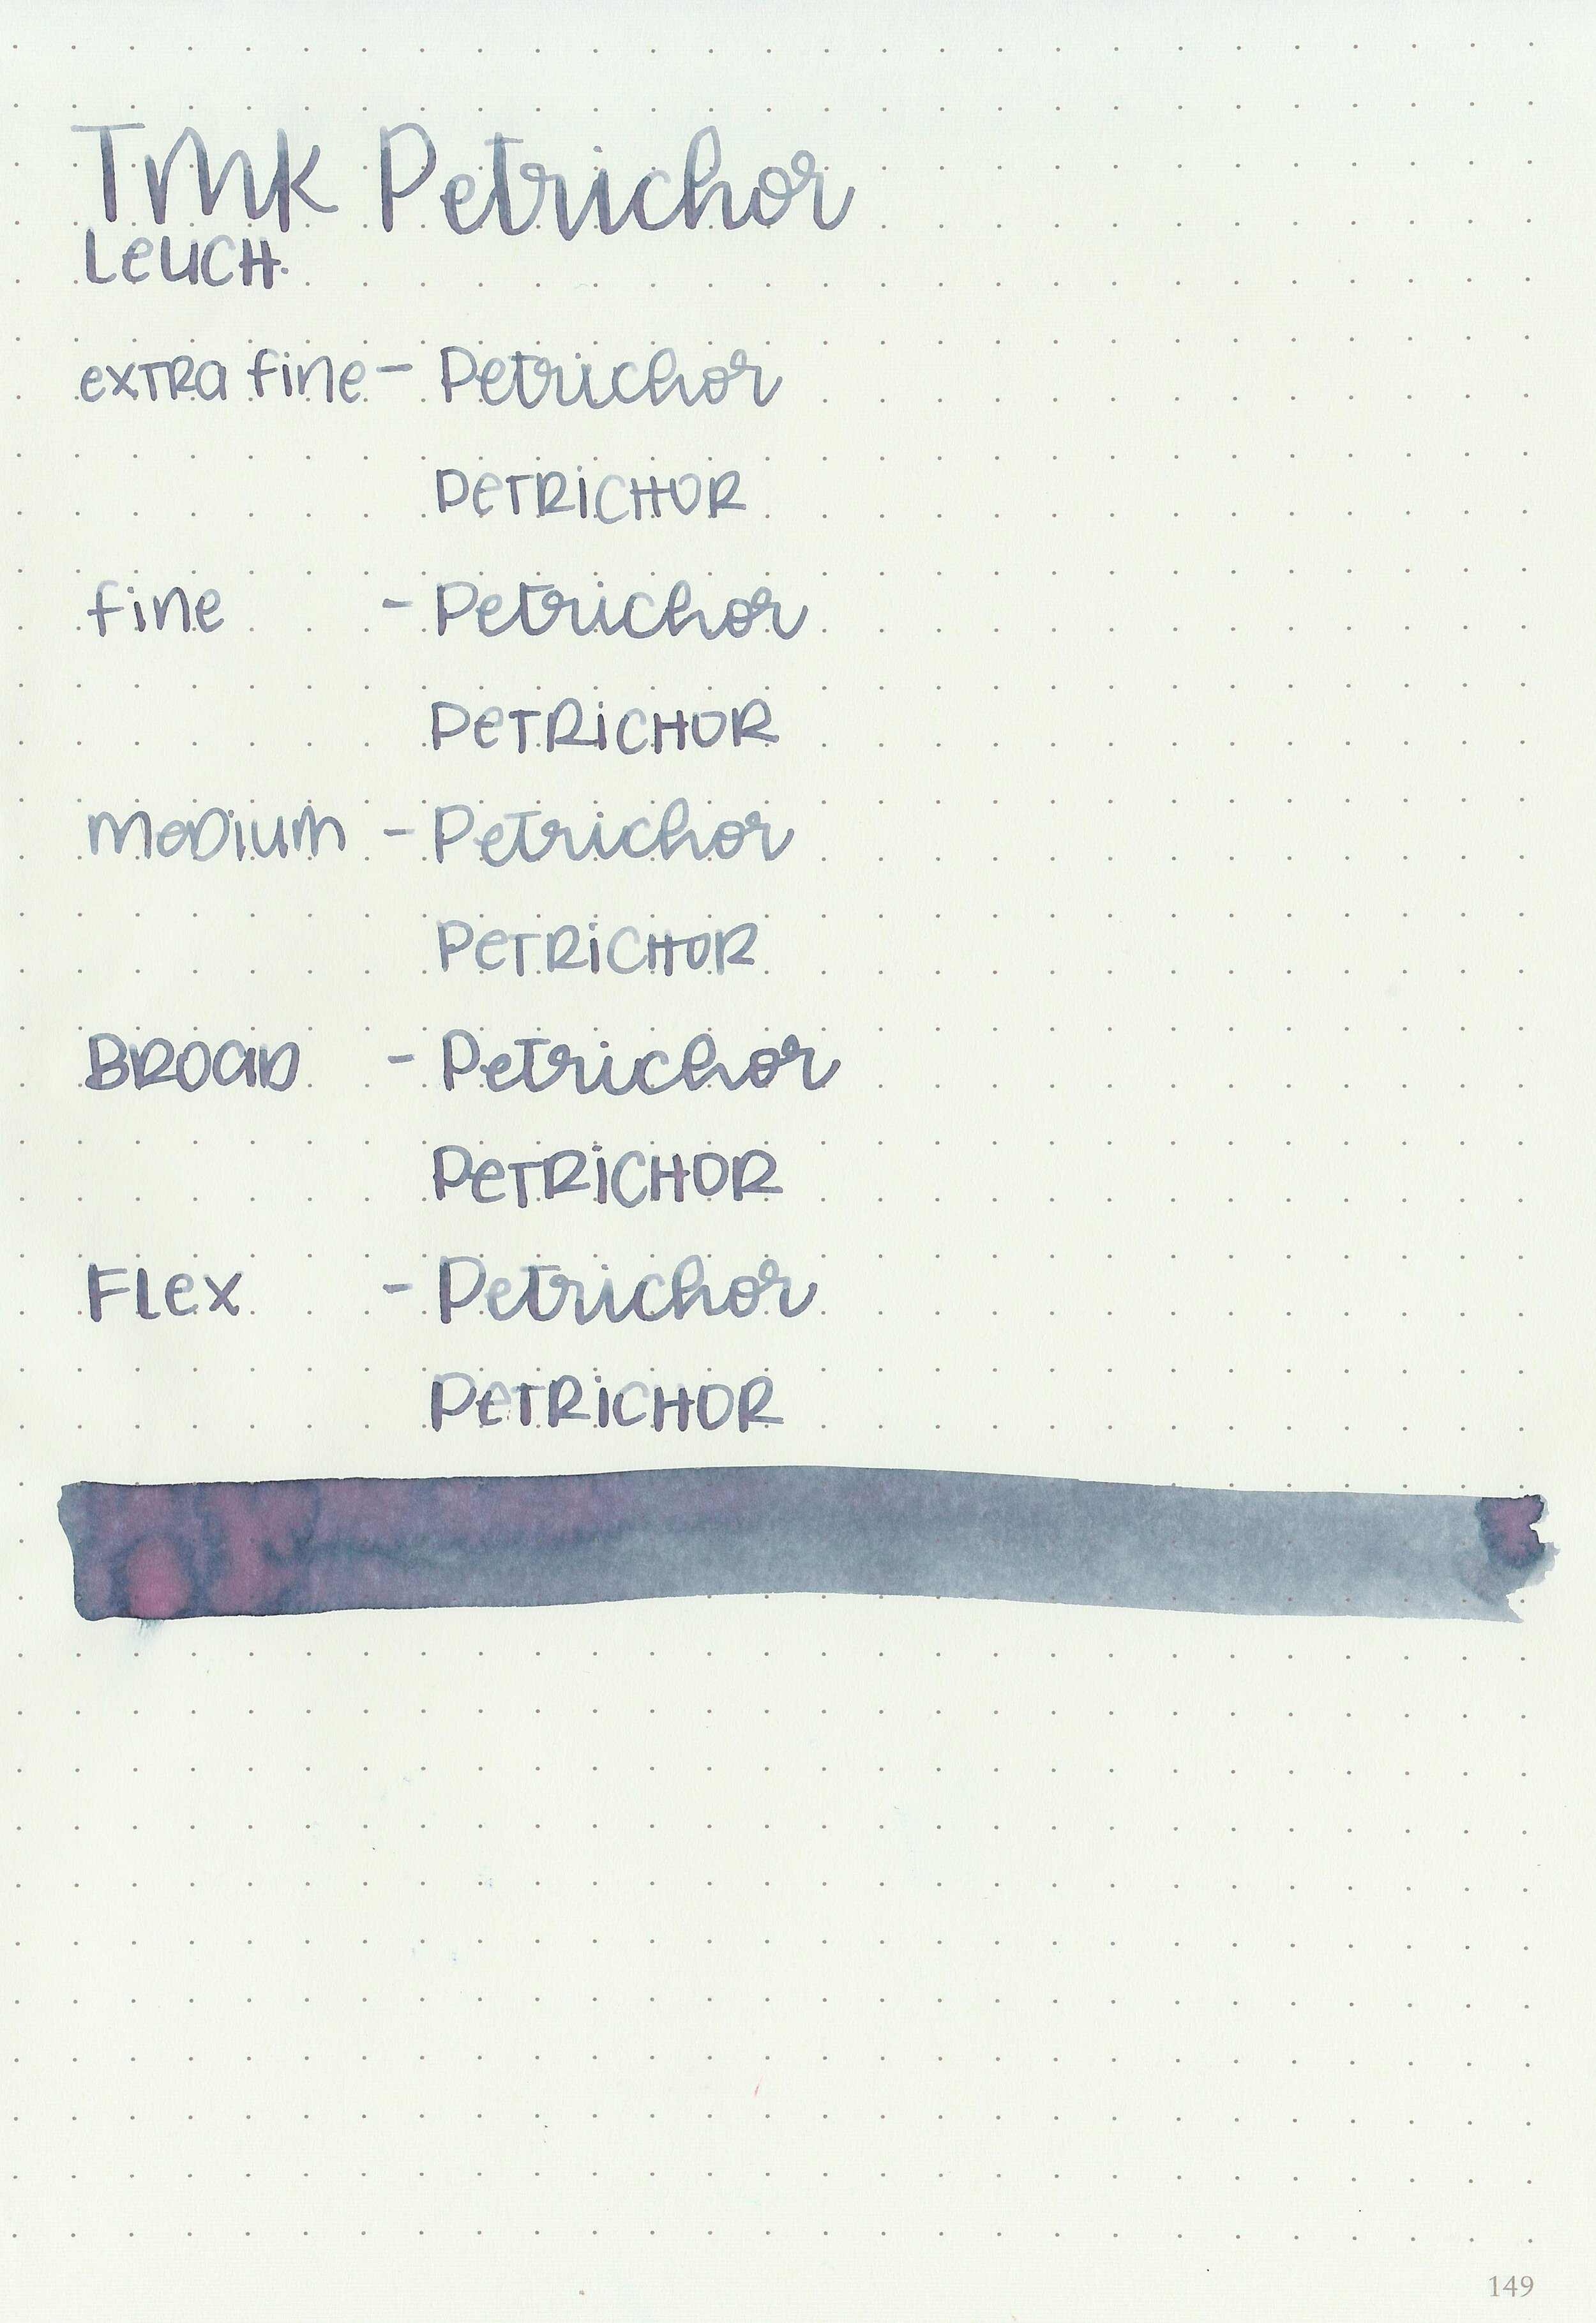 TMK Petrichor
LEUCH.
EXTRA fine - Petrichor
PETRICHOR
fine - Petrichor
PETRICHOR
MEDIUM - Petrichor
PETRICHOR
BROAD - Petrichor
PETRICHOR
FLEX - Petrichor
PETRICHOR
149